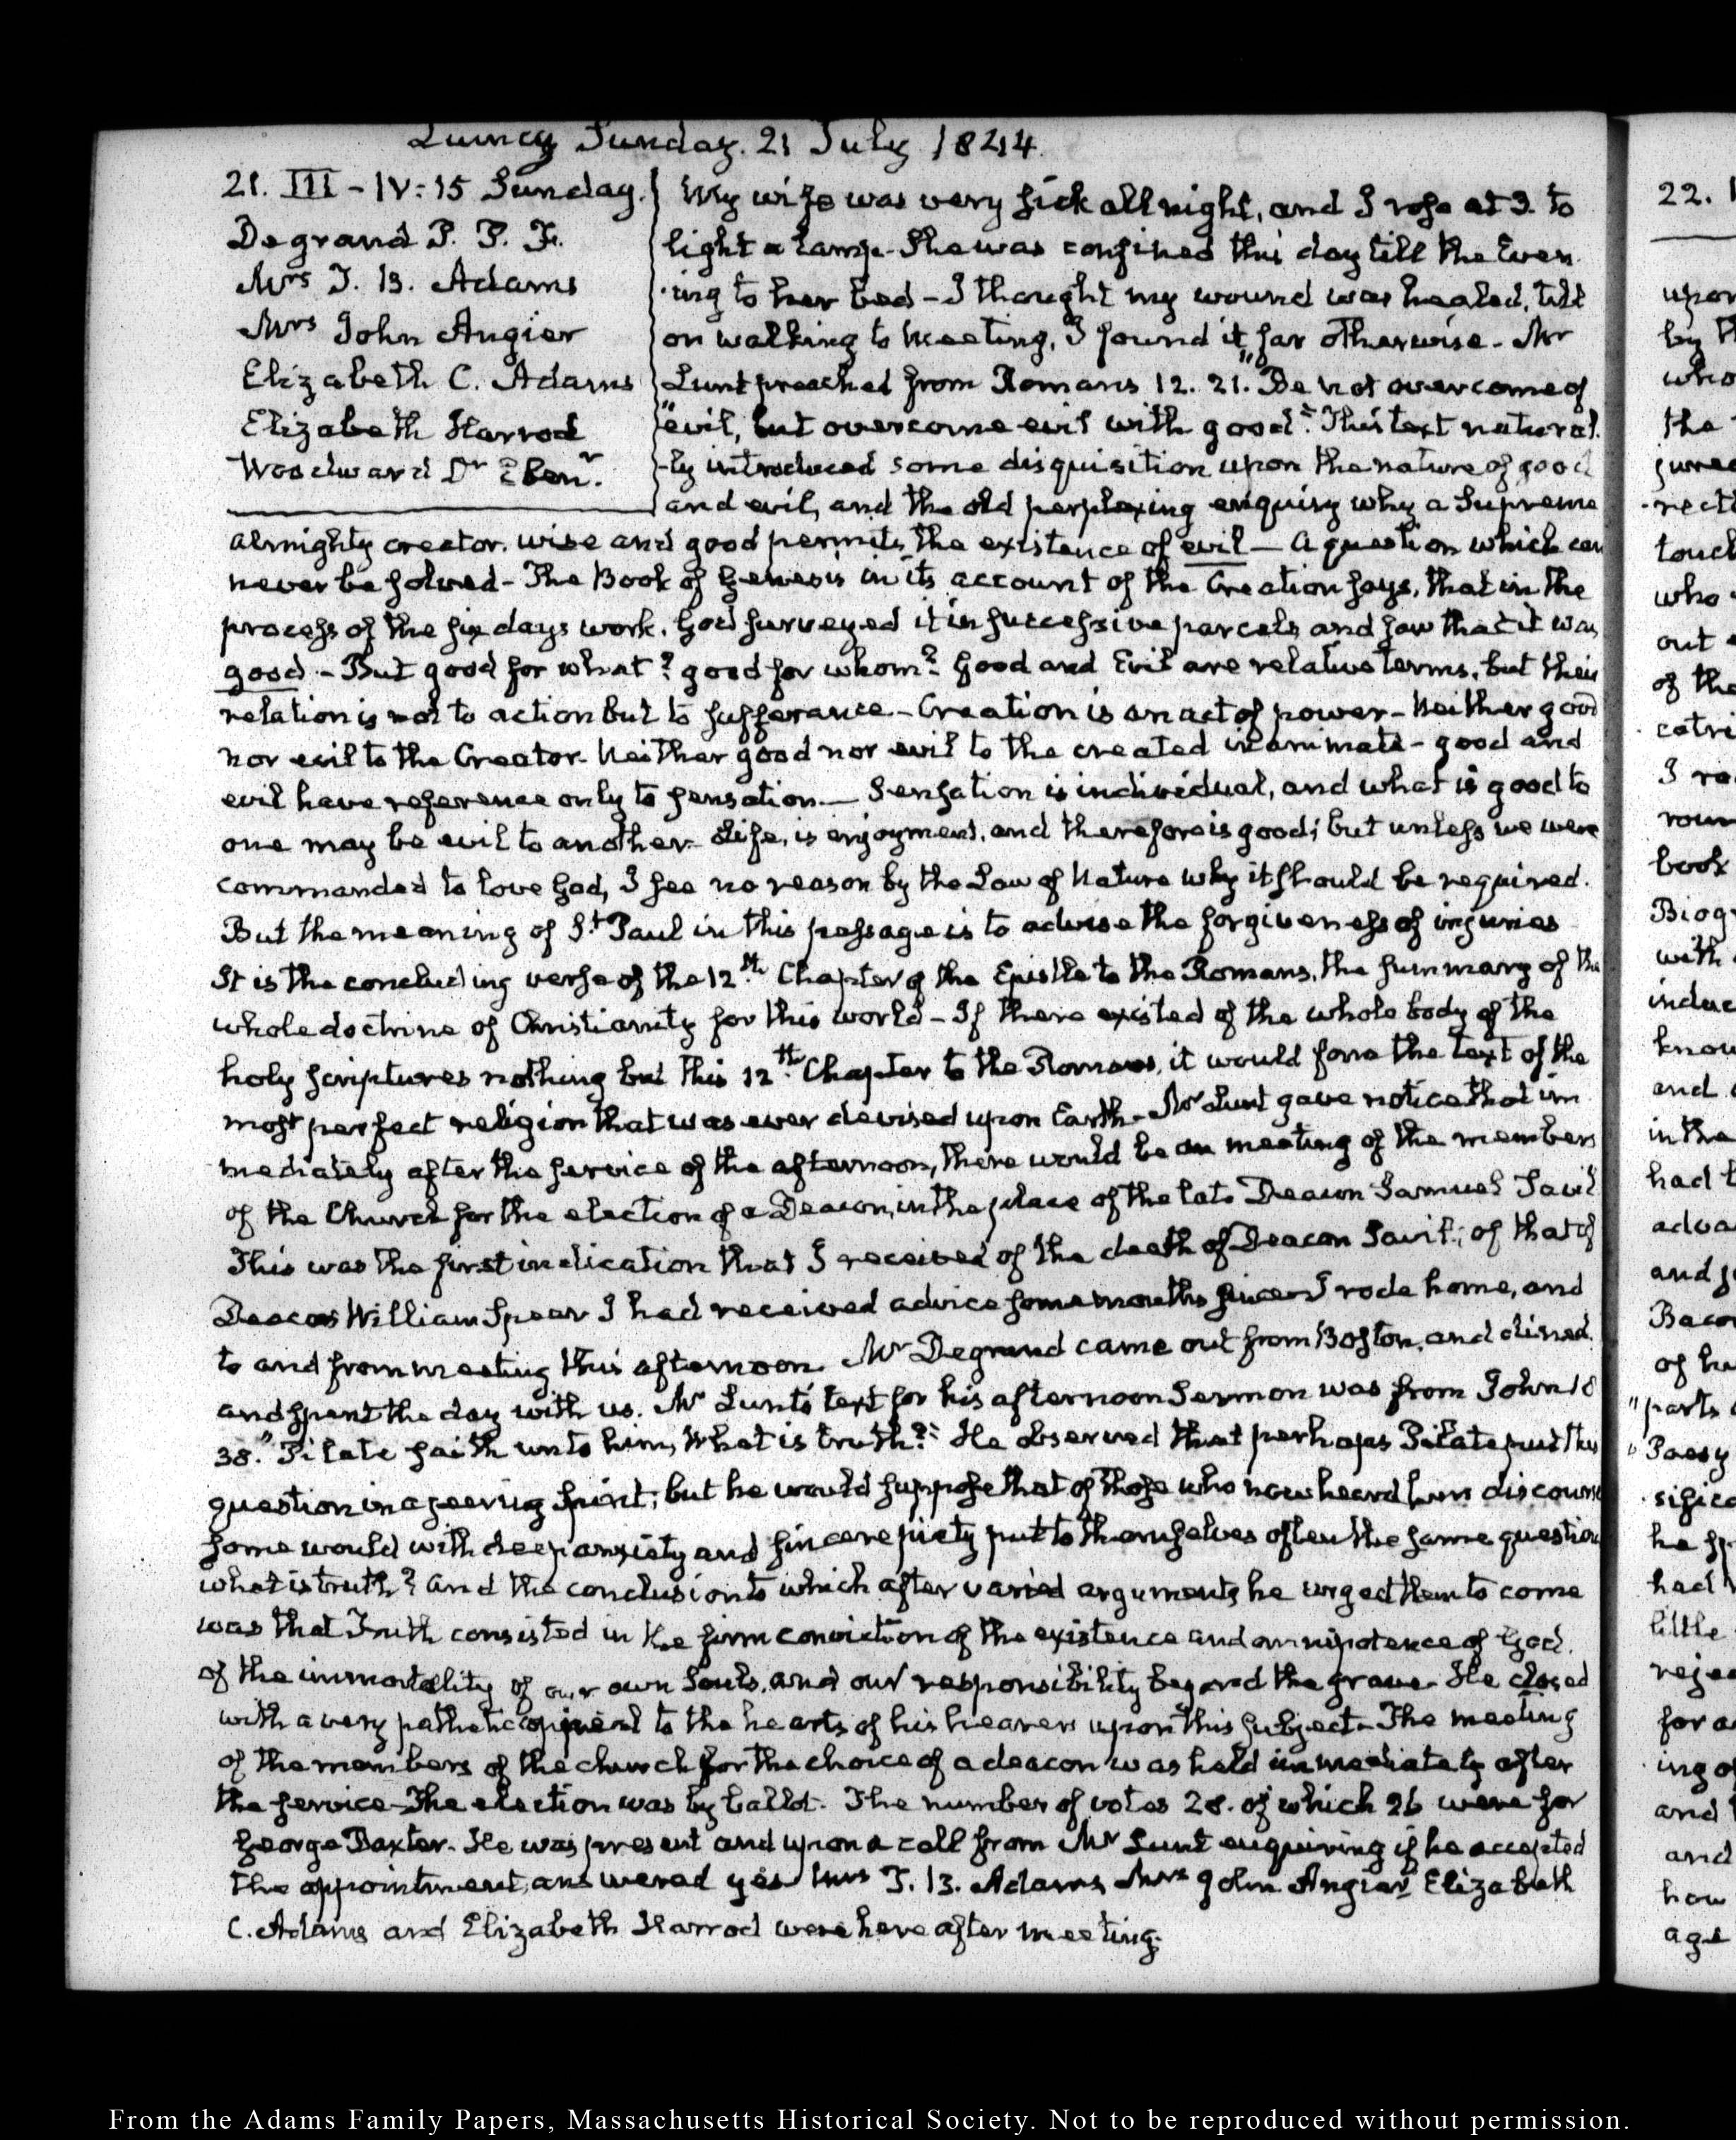 Quincy Sunday. 21 July 1844.
21. III - IV:15 Sunday.
Degrand P. P. F.
Mrs T. B. Adams
Mrs John Angier
Elizabeth C. Adams
Elizabeth Harrod
Woodward Dr Eben.r
My wife was very sick all night, and I rose at 3. to
light a lamp. She was confined this day till the Even
-ing to her bed - I thought my wound was healed, till
on walking to meeting, I found it far otherwise. Mr
Lunt preached from Romans 12. 21. "Be not overcome of
"evil, but overcome evil with good": This text natural
-ly introduced some disquisition upon the nature of good
and evil, and the old perplexing enquiry why a Supreme
almighty creator, wise and good permits the existence of evil — a question which can
never be solved - The Book of Genesis in its account of the Creation says, that in the
process of the six days work, God surveyed it in successive parcels and saw that it was
good - But good for what? good for whom? Good and Evil are relative terms, but their
relation is not to action but to sufferance - Creation is an act of power - Neither good
nor evil to the Creator. Neither good nor evil to the created inanimate - good and
evil have reference only to sensation — Sensation is individual, and what is good to
one may be evil to another. Life, is enjoyment, and therefore is good; but unless we were
commanded to love God, I see no reason by the Law of Nature why it should be required.
But the meaning of St Paul in this passage is to advise the forgiveness of injuries
It is the concluding verse of the 12th Chapter of the Epistle to the Romans, the summary of the
whole doctrine of Christianity for this world - If there existed of the whole body of the
holy scriptures nothing but this 12th Chapter to the Romans, it would form the text of the
most perfect religion that was ever devised upon Earth - Mr Lunt gave notice that im
mediately after the service of the afternoon, there would be a meeting of the members
of the Church for the election of a Deacon, in the place of the late Deacon Samuel Savil
This was the first indication that I received of the death of Deacon Savil; of that of
Deacon William Spear I had received advice some months since I rode home, and
to and from meeting this afternoon. Mr Degrand came out from Boston, and dined
and spent the day with us. Mr Lunt's text for his afternoon Sermon was from John 18
38. "Pilate saith unto him, What is truth?" He observed that perhaps Pilate put this
question in a jeering spirit; but he would suppose that of those who now heard his discourse
some would with deep anxiety and sincere piety put to themselves often the same question
what is truth? and the conclusion to which after varied arguments he urged them to come
was that Truth consisted in the firm conviction of the existence and omnipotence of God.
of the immortality of our own Souls, and our responsibility beyond the grave. He closed
with a very pathetic appeal to the hearts of his hearers upon this subject - The meeting
of the members of the church for the choice of a deacon was held immediately after
the service - The election was by ballot. The number of votes 28. of which 26 were for
George Baxter. He was present and upon a call from Mr Lunt enquiring if he accepted
the appointment, answered yes Mrs T. B. Adams Mrs John Angier Elizabeth
C. Adams and Elizabeth Harrod were here after meeting.
22.
upon
by
who
the
touch
who
out
of the
I
book
Biog
with
know
and
in the
had
and
of
"parts
"Poesy
had
little
ing
and
and
how
From the Adams Family Papers, Massachusetts Historical Society. Not to be reproduced without permission.